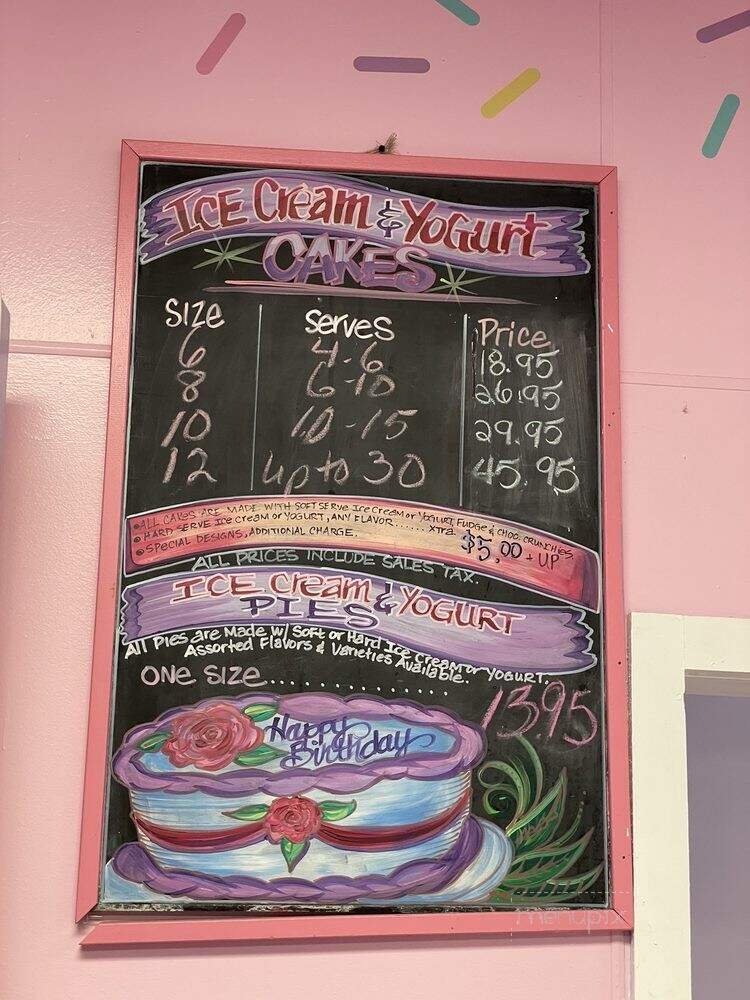 ICE Cream & YOGurt
CAKES
SIZE Serves Price
6 4-6 18.95
8 6-10 26.95
10 10-15 29.95
12 up to 30 45.95
•ALL CAKES ARE MADE WITH SOFT SERVE ICE CREAM or YOGURT, FUDGE & CHOC. CRUNCHIES.
•HARD SERVE ICE CREAM or YOGURT, ANY FLAVOR...... xtra. $5.00 + UP
•SPECIAL DESIGNS, ADDITIONAL CHARGE.
ALL PRICES INCLUDE SALES TAX.
ICE Cream & YOGURT
PIES
All Pies are Made w/ Soft or Hard Ice Cream or YOGURT.
Assorted Flavors & Varieties Available.
ONE SIZE.............. 13.95
Happy
Birthday
menupix